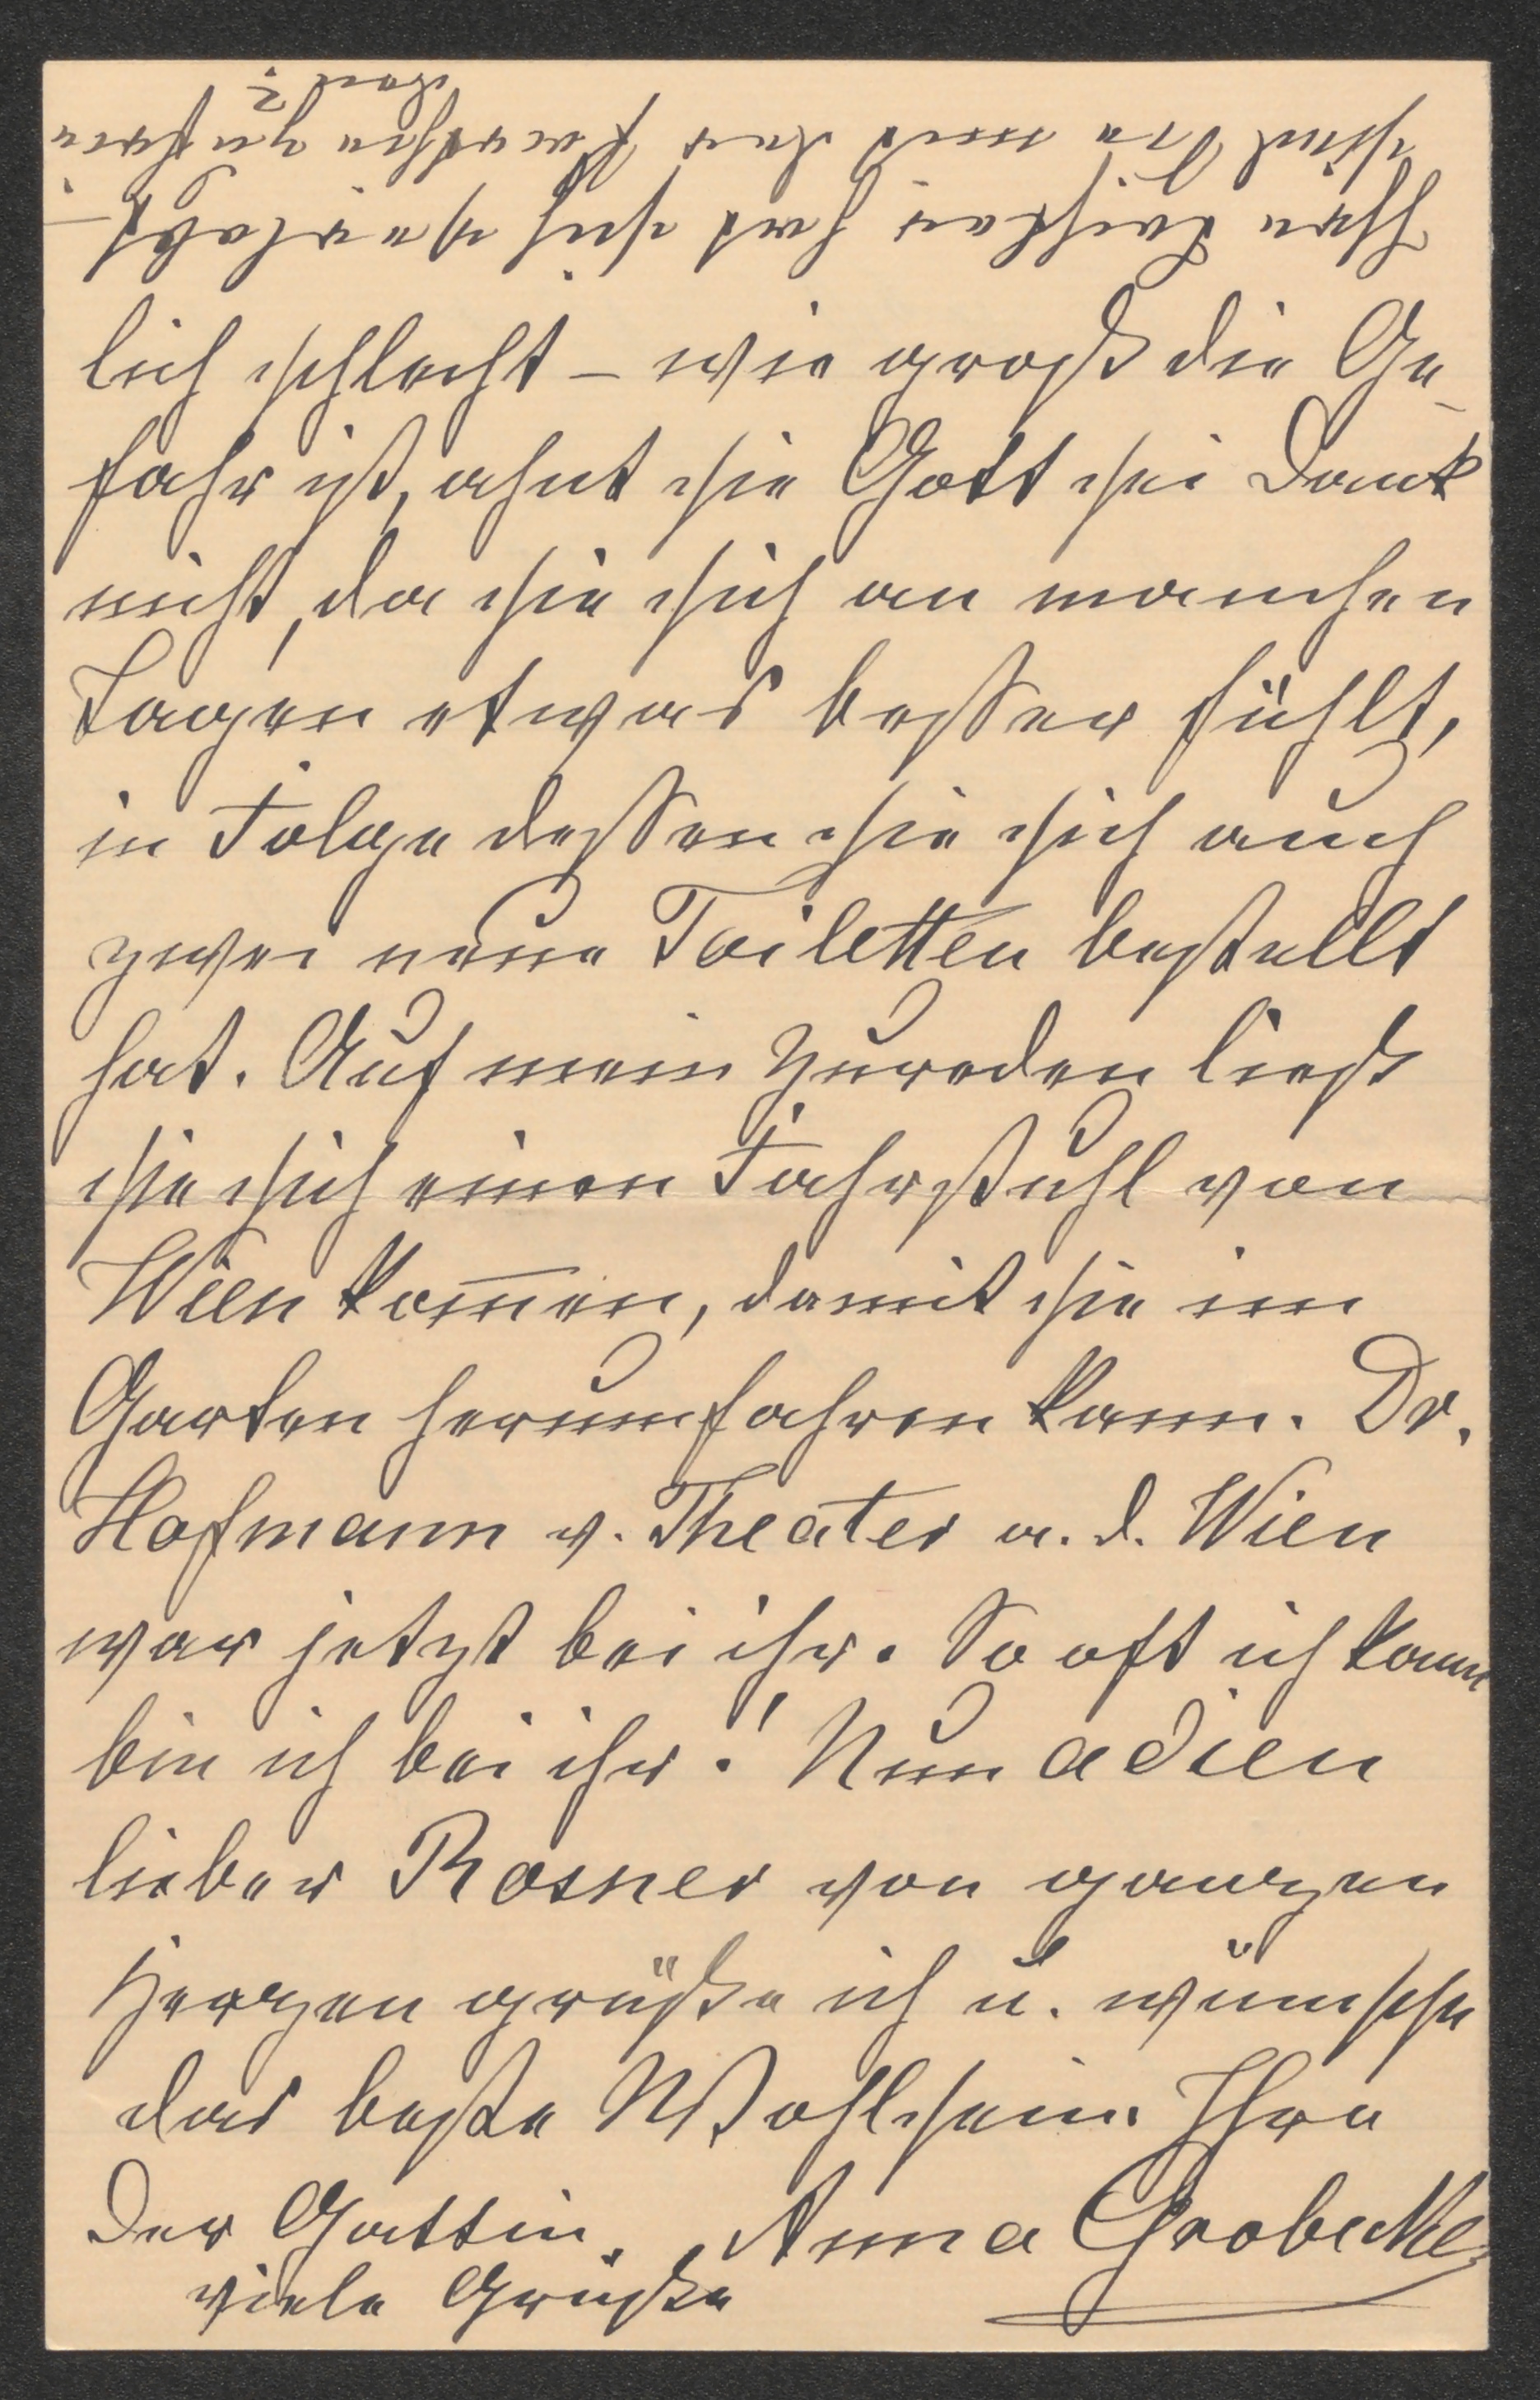 lich schlecht – wie groß die Ge-
fahr ist, ahnt sie Gott sei Dank
nicht, da sie sich an manchen
Tagen etwas besser fühlt,
in Folge dessen sie sich auch
zwei neue Toiletten bestellt
hat. Auf mein Zureden ließ
sie sich einen Fahrstuhl von
Wien kom̅en, damit sie im
Garten herumfahren kann. Dr.
Hofmann v. Theater a. d. Wien
war jetzt bei ihr. So oft ich kann
bin ich bei ihr! Nun adieu
lieber Rosner von ganzen
Herzen grüße ich u. wünsche
das beste Wohlsein. Ihre
Der Gattin Anna Grobecker
viele Grüße
Ihre Tochter hat sich verlobt –
sind Sie mit der Parthie zufrie
den?